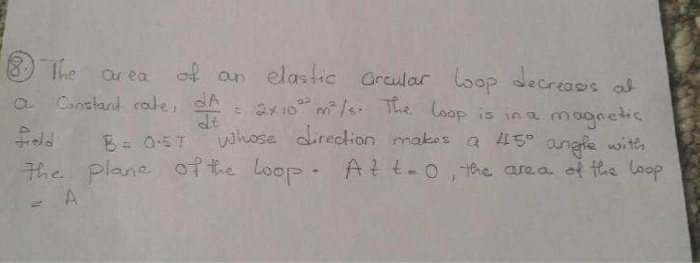 8. The area of an elastic circular loop decreases at
a Constant rate, dA/dt = 2x10²² m²/s. The loop is in a magnetic
field B = 0.5T whose direction makes a 45° angle with
The plane of the loop. At t=0, the area of the loop
= A